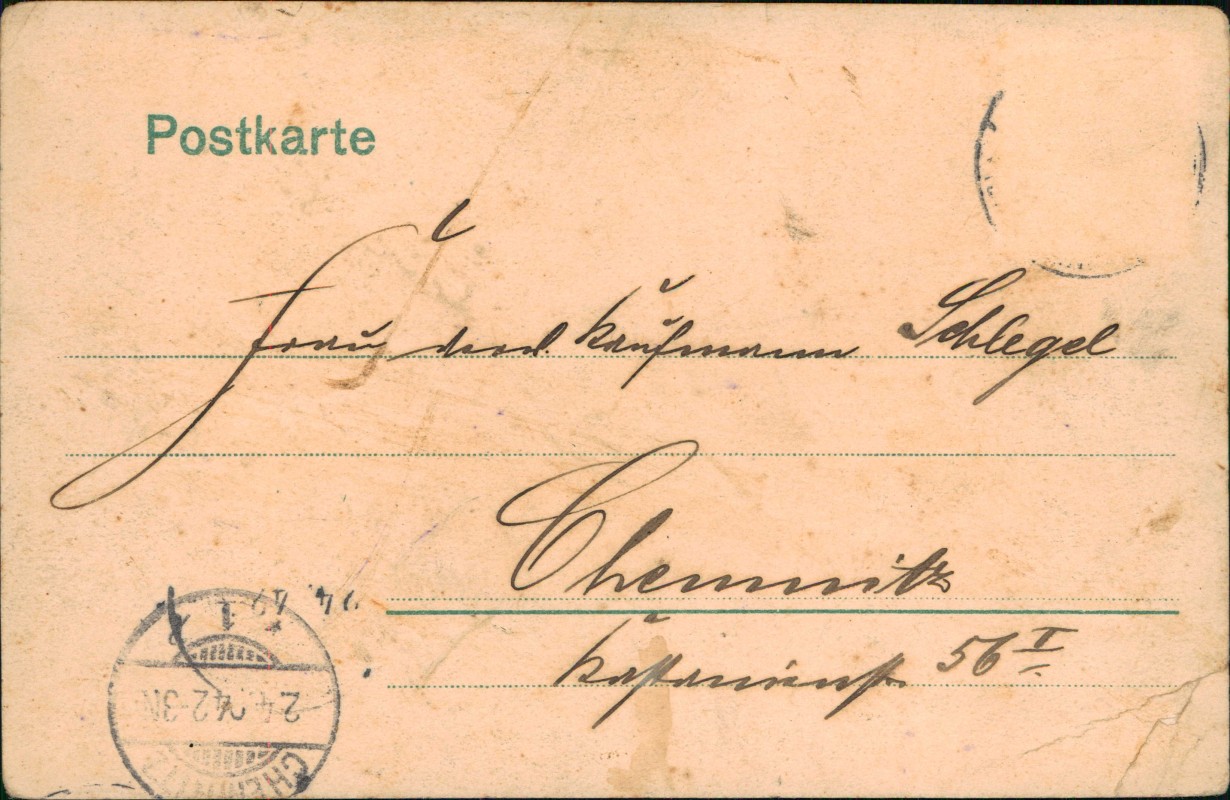 Postkarte
Frau Kaufmann Schlegel
Chemnitz
Kastanienstr. 56 II
CHEMNITZ